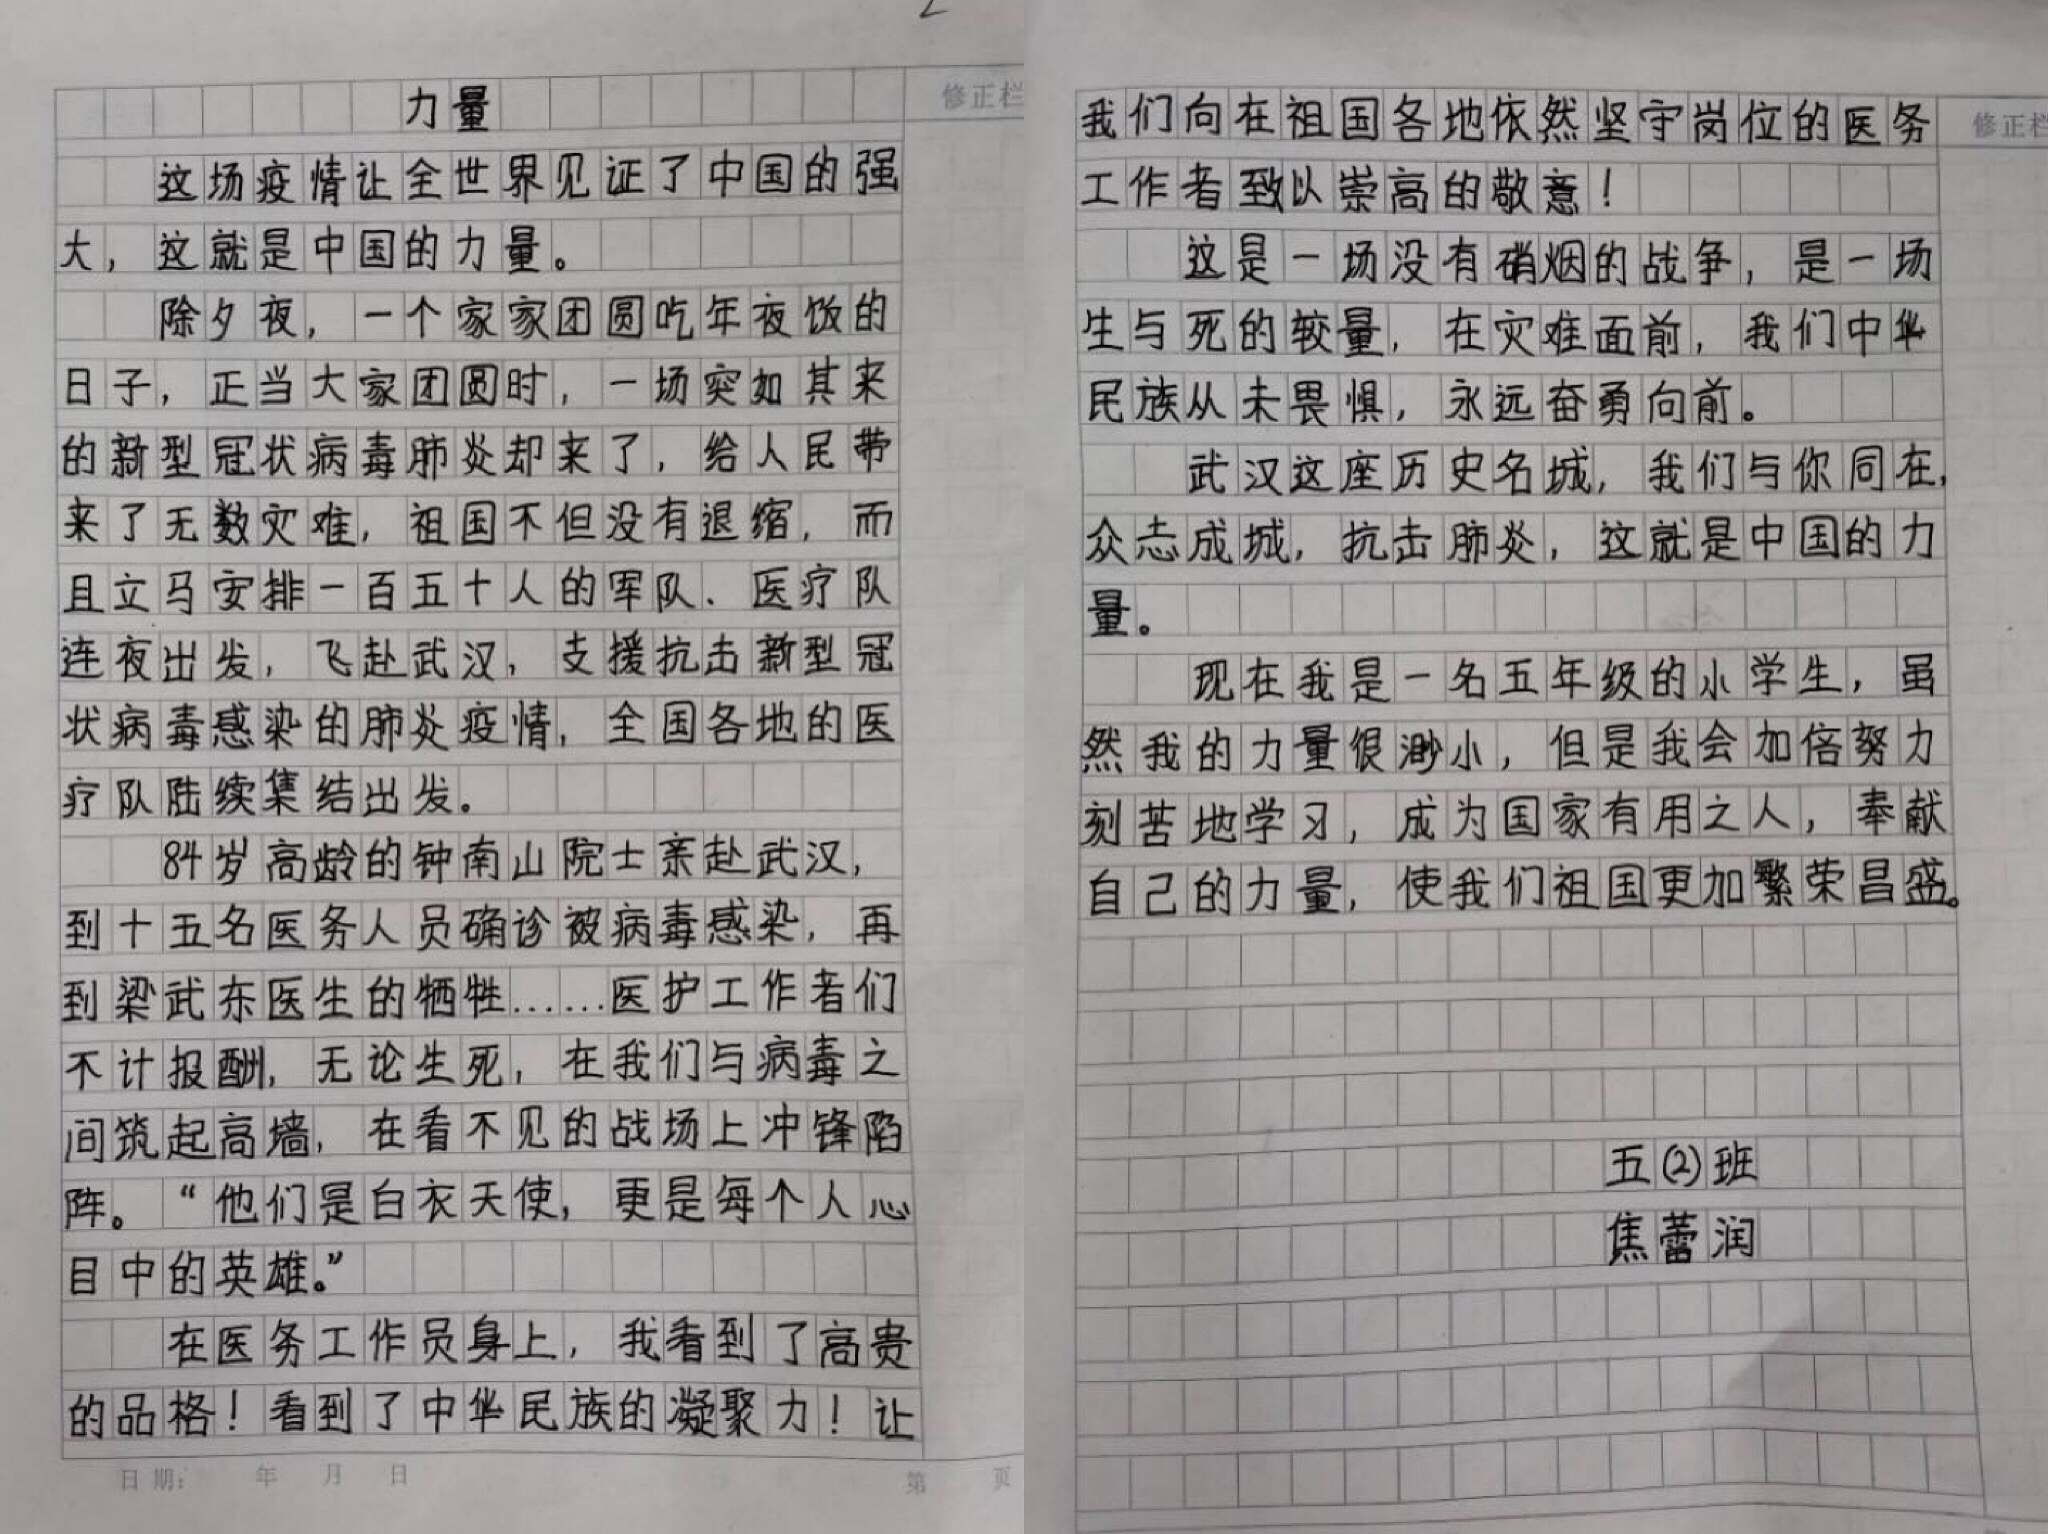 力量
修正栏
这场疫情让全世界见证了中国的强
大，这就是中国的力量。
除夕夜，一个家家团圆吃年夜饭的
日子，正当大家团圆时，一场突如其来
的新型冠状病毒肺炎却来了，给人民带
来了无数灾难，祖国不但没有退缩，而
且立马安排一百五十人的军队、医疗队
连夜出发，飞赴武汉，支援抗击新型冠
状病毒感染的肺炎疫情，全国各地的医
疗队陆续集结出发。
84岁高龄的钟南山院士亲赴武汉，
到十五名医务人员确诊被病毒感染，再
到梁武东医生的牺牲……医护工作者们
不计报酬，无论生死，在我们与病毒之
间筑起高墙，在看不见的战场上冲锋陷
阵。“他们是白衣天使，更是每个人心
目中的英雄。”
在医务工作员身上，我看到了高贵
的品格！看到了中华民族的凝聚力！让
日期： 年 月 日 第 页
我们向在祖国各地依然坚守岗位的医务
修正栏
工作者致以崇高的敬意！
这是一场没有硝烟的战争，是一场
生与死的较量，在灾难面前，我们中华
民族从未畏惧，永远奋勇向前。
武汉这座历史名城，我们与你同在，
众志成城，抗击肺炎，这就是中国的力
量。
现在我是一名五年级的小学生，虽
然我的力量很渺小，但是我会加倍努力
刻苦地学习，成为国家有用之人，奉献
自己的力量，使我们祖国更加繁荣昌盛。
五(2)班
焦蕾润